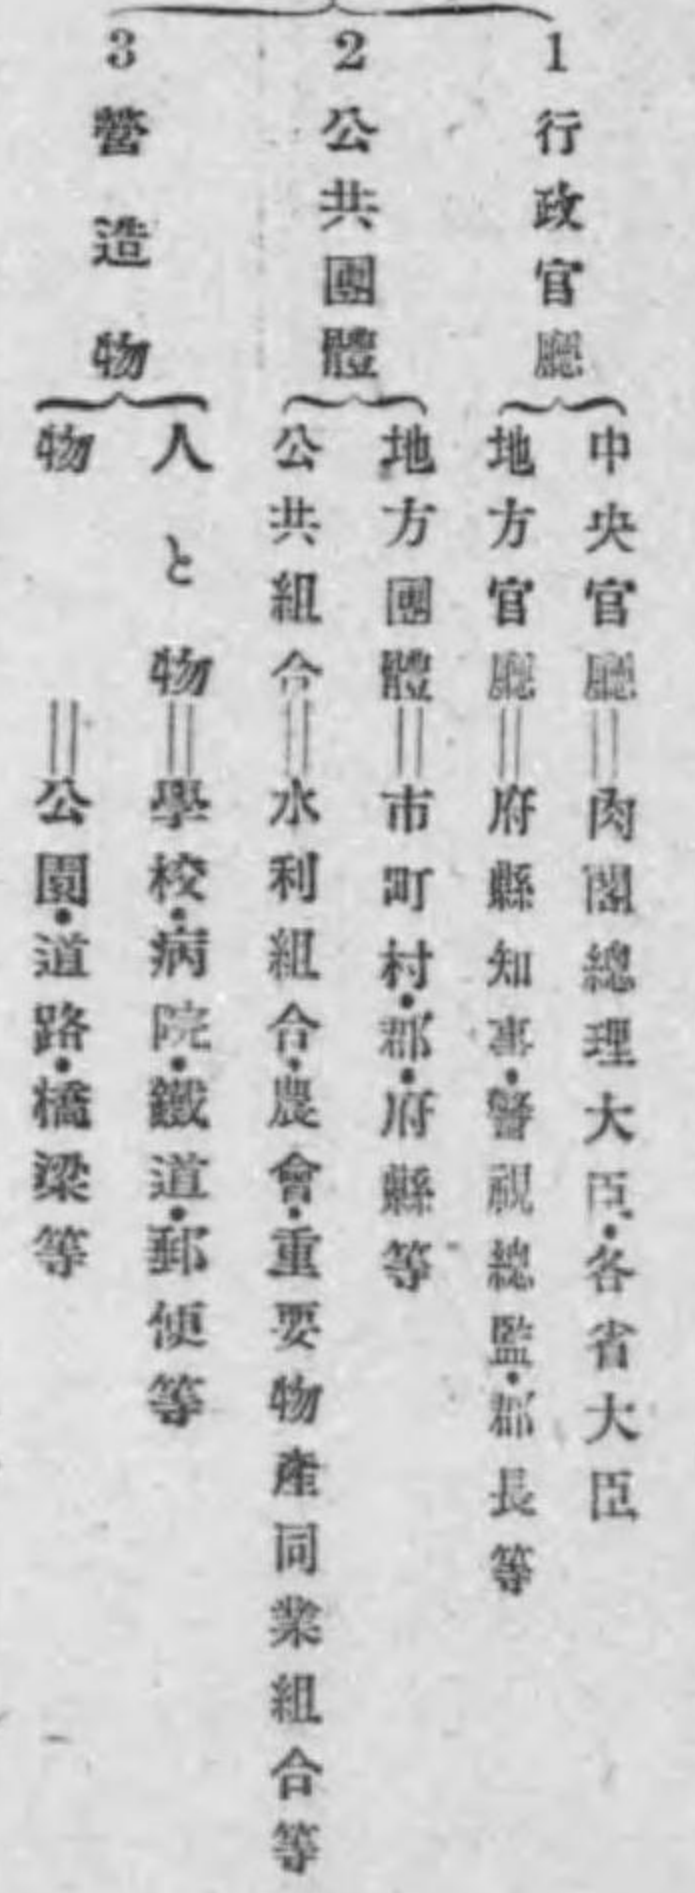 1 行政官廳
中央官廳＝內閣總理大臣・各省大臣
地方官廳＝府縣知事・警視總監・郡長等
2 公共團體
地方團體＝市町村・郡・府縣等
公共組合＝水利組合・農會・重要物產同業組合等
3 營造物
人と物＝學校・病院・鐵道・郵便等
物＝公園・道路・橋梁等